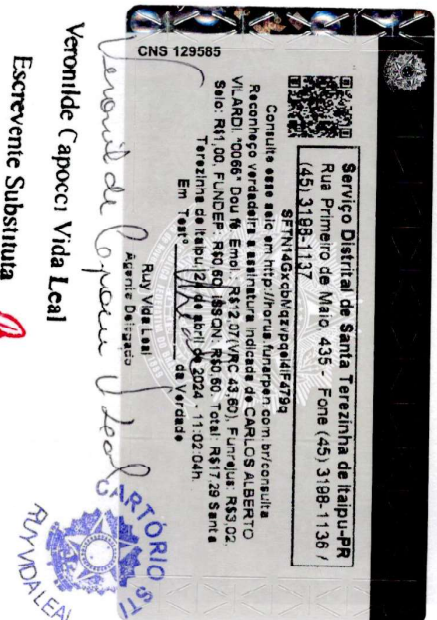 CNS 129585
Serviço Distrital de Santa Terezinha de Itaipu-PR
Rua Primeiro de Maio, 435 - Fone (45) 3198-1136 /
(45) 3198-1137
Consulte esse selo em http://horus.funarpen.com.br/consulta
Reconheço verdadeira a assinatura indicada de CARLOS ALBERTO
VILARDI. *0066* Dou fé. Emol.: R$12,07(VRC 43,60), Funrejus: R$3,02,
Selo: R$1,00, FUNDEP: R$0,60, ISSQN: R$0,60. Total: R$17,29 Santa
Terezinha de Itaipu, de abril de 2024 - 11:02:04h.
Em Testº da Verdade
Ruy Vida Leal
Agente Delegado
Veronilde Capocci V Leal
Veronilde Capocci Vida Leal
Escrevente Substituta
CARTÓRIO
RUY VIDA LEAL